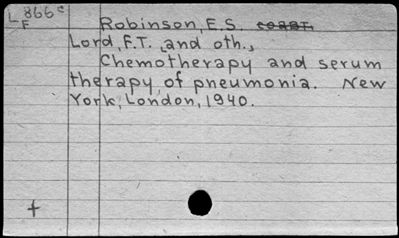 L 866c
F
Robinson, E.S.
Lord, F.T., and oth.,
Chemotherapy and serum
therapy of pneumonia. New
York, London, 1940.
+